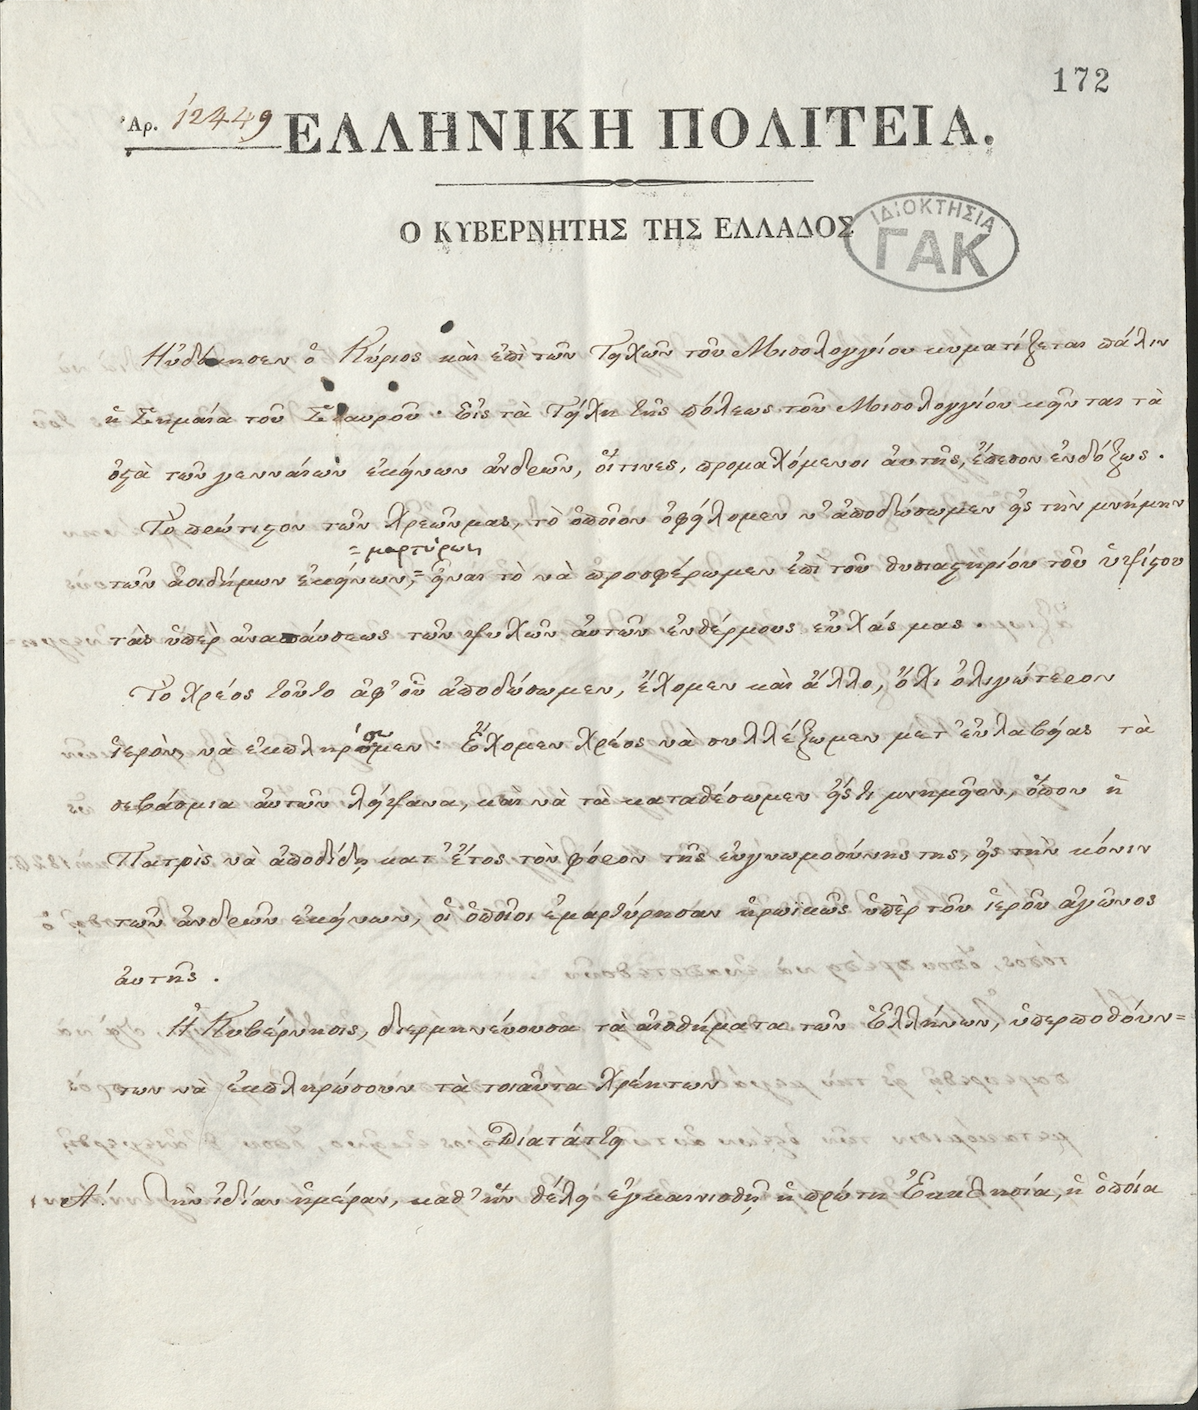 172
Ἀρ. 12449
ΕΛΛΗΝΙΚΗ ΠΟΛΙΤΕΙΑ.
Ο ΚΥΒΕΡΝΗΤΗΣ ΤΗΣ ΕΛΛΑΔΟΣ
ΙΔΙΟΚΤΗΣΙΑ
ΓΑΚ
Ηὐδόκησεν ὁ Κύριος καὶ ἐπὶ τῶν Τειχῶν τοῦ Μισολογγίου κυματίζεται πάλιν
ἡ Σημαία τοῦ Σταυροῦ· Εἰς τὰ Τείχη τῆς πόλεως τοῦ Μισολογγίου κεῖνται τὰ
ὀστᾶ τῶν γενναίων ἐκείνων ἀνδρῶν, οἵτινες, προμαχόμενοι αὐτῆς, ἔπεσον ἐνδόξως.
Τὸ πρώτιστον τῶν χρεῶν μας, τὸ ὁποῖον ὀφείλομεν ν' ἀποδώσωμεν εἰς τὴν μνήμην
= μαρτύρων
τῶν ἀοιδήμων ἐκείνων,= εἶναι τὸ νὰ προσφέρωμεν ἐπὶ τοῦ θυσιαστηρίου τοῦ ὑψίστου
τὰς ὑπὲρ ἀναπαύσεως τῶν ψυχῶν αὐτῶν ἐνθέρμους εὐχάς μας.
Τὸ χρέος τοῦτο ἀφ' οὗ ἀποδώσωμεν, ἔχομεν καὶ ἄλλο, ὄχι ὀλιγώτερον
ἱερὸν, νὰ ἐκπληρώσωμεν· Ἔχομεν χρέος νὰ συλλέξωμεν μετ' εὐλαβείας τὰ
σεβάσμια αὐτῶν λείψανα, καὶ νὰ τὰ καταθέσωμεν εἴς τι μνημεῖον, ὅπου ἡ
Πατρὶς νὰ ἀποδίδῃ κατ' ἔτος τὸν φόρον τῆς εὐγνωμοσύνης της, εἰς τὴν κόνιν
τῶν ἀνδρῶν ἐκείνων, οἱ ὁποῖοι ἐμαρτύρησαν ἡρωϊκῶς ὑπὲρ τοῦ ἱεροῦ ἀγῶνος
αὐτῆς.
Ἡ Κυβέρνησις, διερμηνεύουσα τὰ αἰσθήματα τῶν Ἑλλήνων, ὑπερποθούν=
των νὰ ἐκπληρώσουν τὰ τοιαῦτα χρέη των
Διατάττει
Α΄. Τὴν ἰδίαν ἡμέραν, καθ' ἣν θέλει ἐγκαινισθῆ ἡ πρώτη Ἐκκλησία, ἡ ὁποία